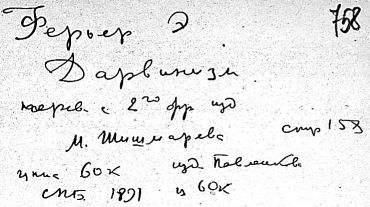 Ферьер Э 758
Дарвинизм
перев с 2го фр изд
М. Шишмарева стр 158
цена 60к изд Павленкова
СПБ 1891 ц 60к